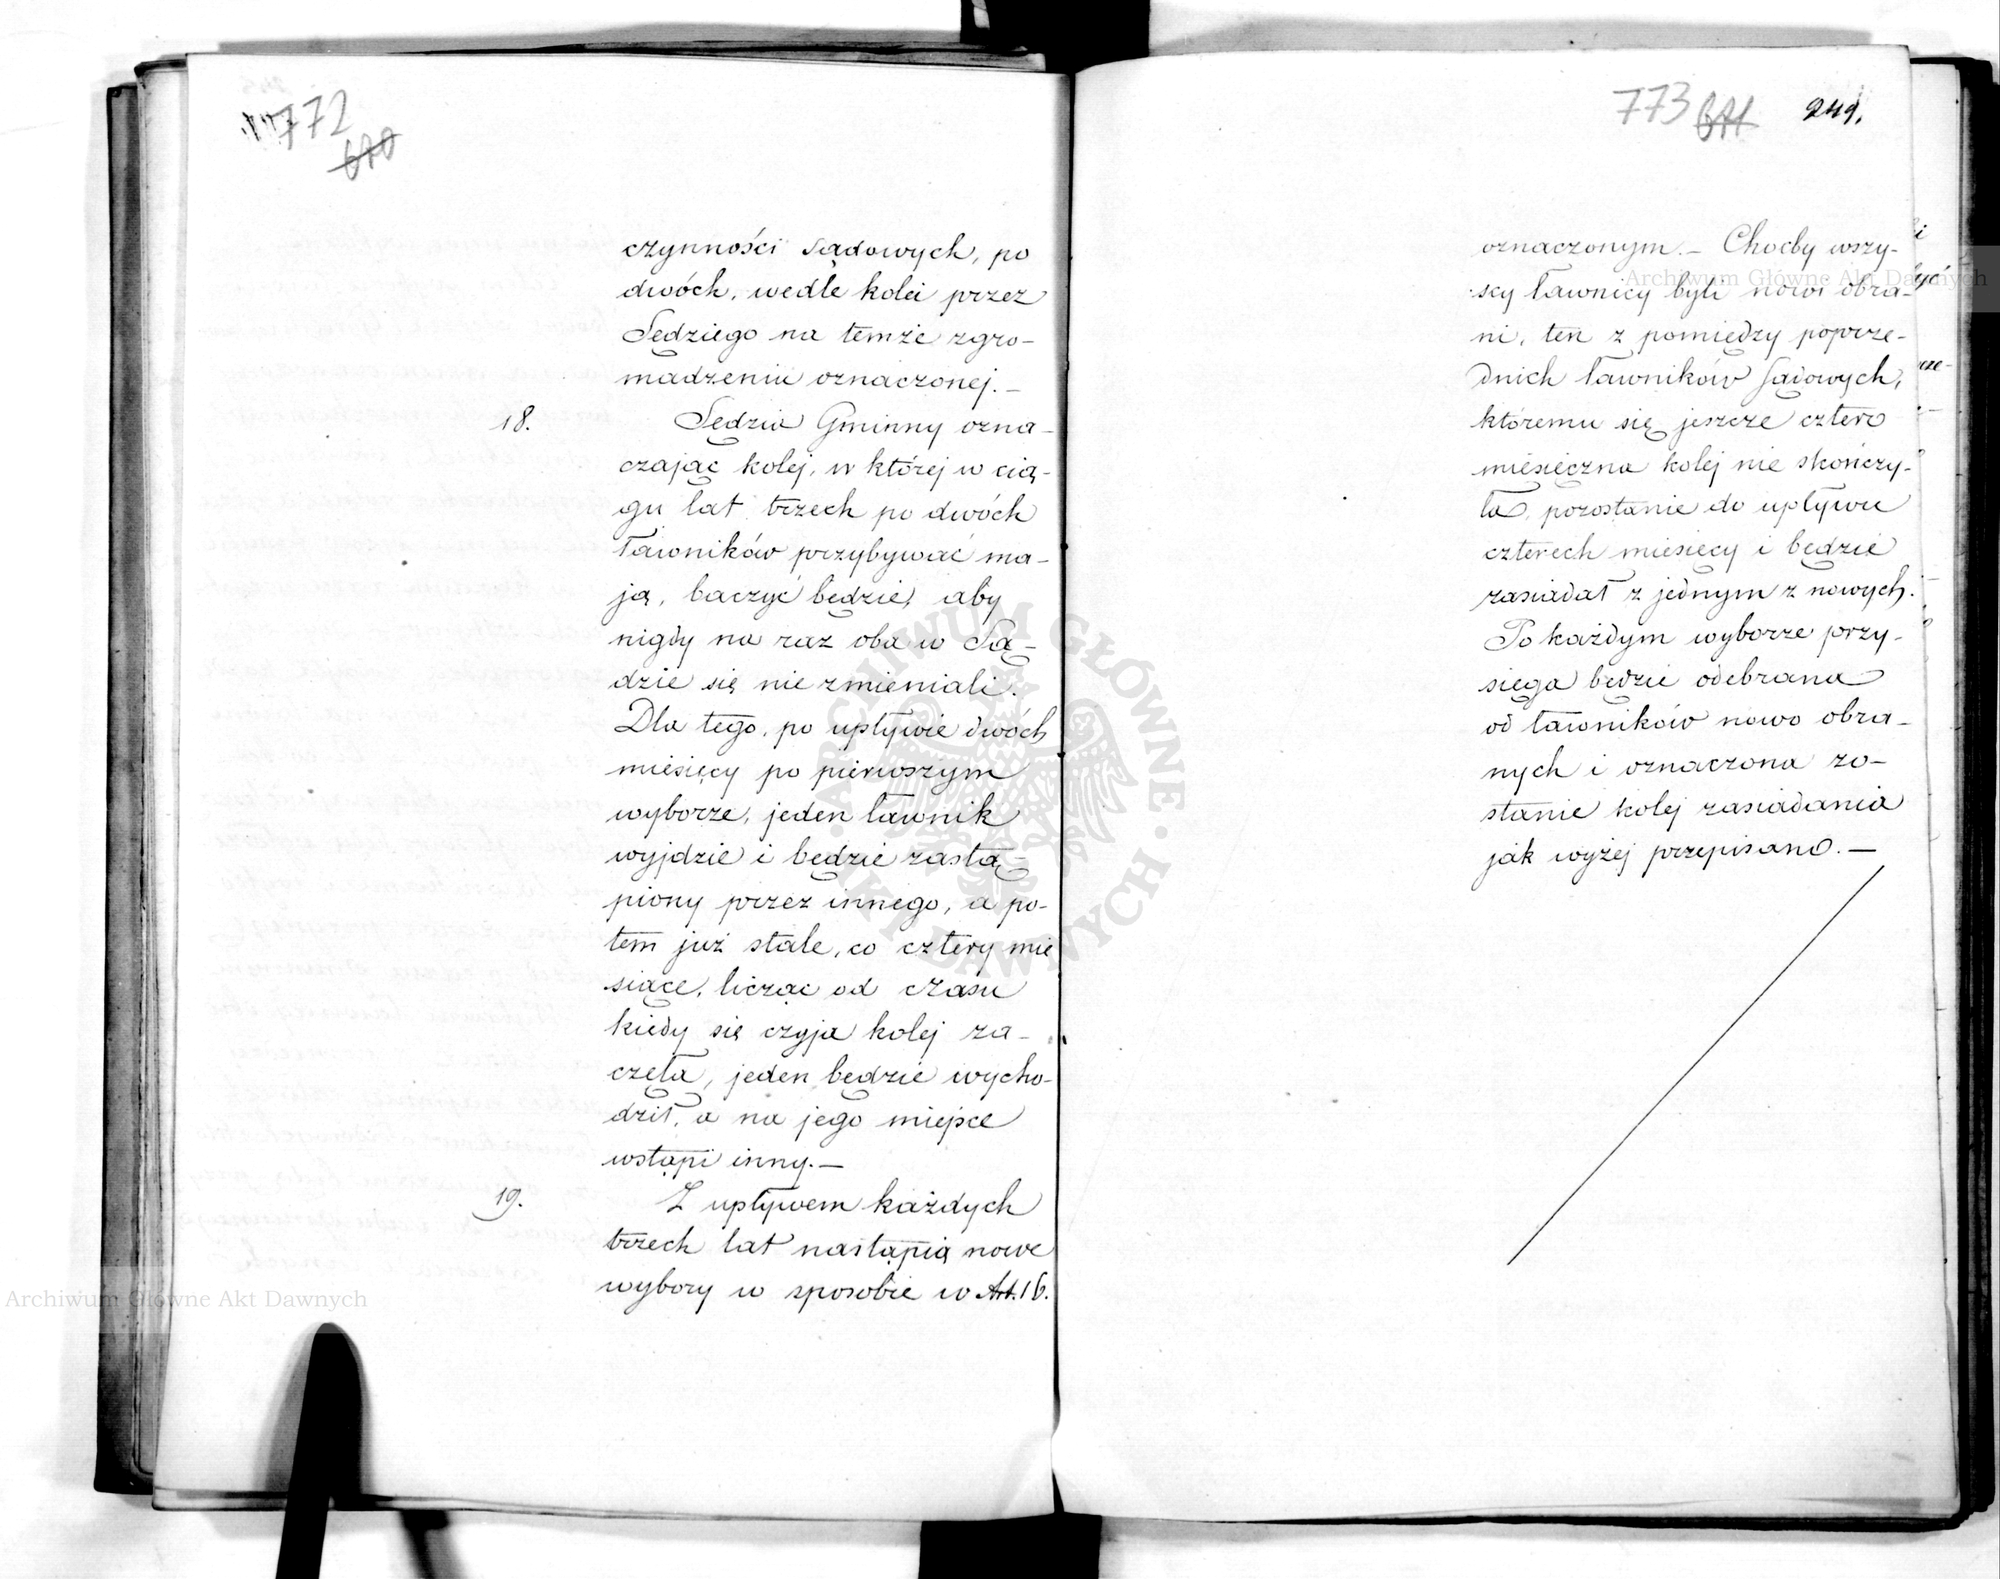 772
670
czynności sądowych, po
dwóch, wedle kolei przez
Sędziego na temże zgro-
madzeniu oznaczonej.—
18. Sędzia Gminny ozna-
czając kolej, w której w cią-
gu lat trzech po dwóch
ławników przybywać ma-
ją, baczyć będzie, aby
nigdy na raz oba w Są-
dzie się nie zmieniali.
Dla tego, po upływie dwóch
miesięcy po pierwszym
wyborze, jeden ławnik
wyjdzie i będzie zastą-
piony przez innego, a po-
tem już stale, co cztery mie
siące, licząc od czasu
kiedy się czyja kolej za-
częła, jeden będzie wycho-
dził, a na jego miejsce
wstąpi inny.—
19. Z upływem każdych
trzech lat nastąpią nowe
wybory w sposobie w Art. 16.
773 671 249.
oznaczonym.— Choćby wszy-
scy ławnicy byli nowi obra-
ni, ten z pomiędzy poprze-
dnich ławników sądowych,
któremu się jeszcze cztero
miesięczna kolej nie skończy-
ła, pozostanie do upływu
czterech miesięcy i będzie
zasiadał z jednym z nowych.
Po każdym wyborze przy-
sięga będzie odebrana
od ławników nowo obra-
nych i oznaczona zo-
stanie kolej zasiadania
jak wyżej przepisano.—
Archiwum Główne Akt Dawnych
Archiwum Główne Akt Dawnych
ARCHIWUM GŁÓWNE
AKT DAWNYCH